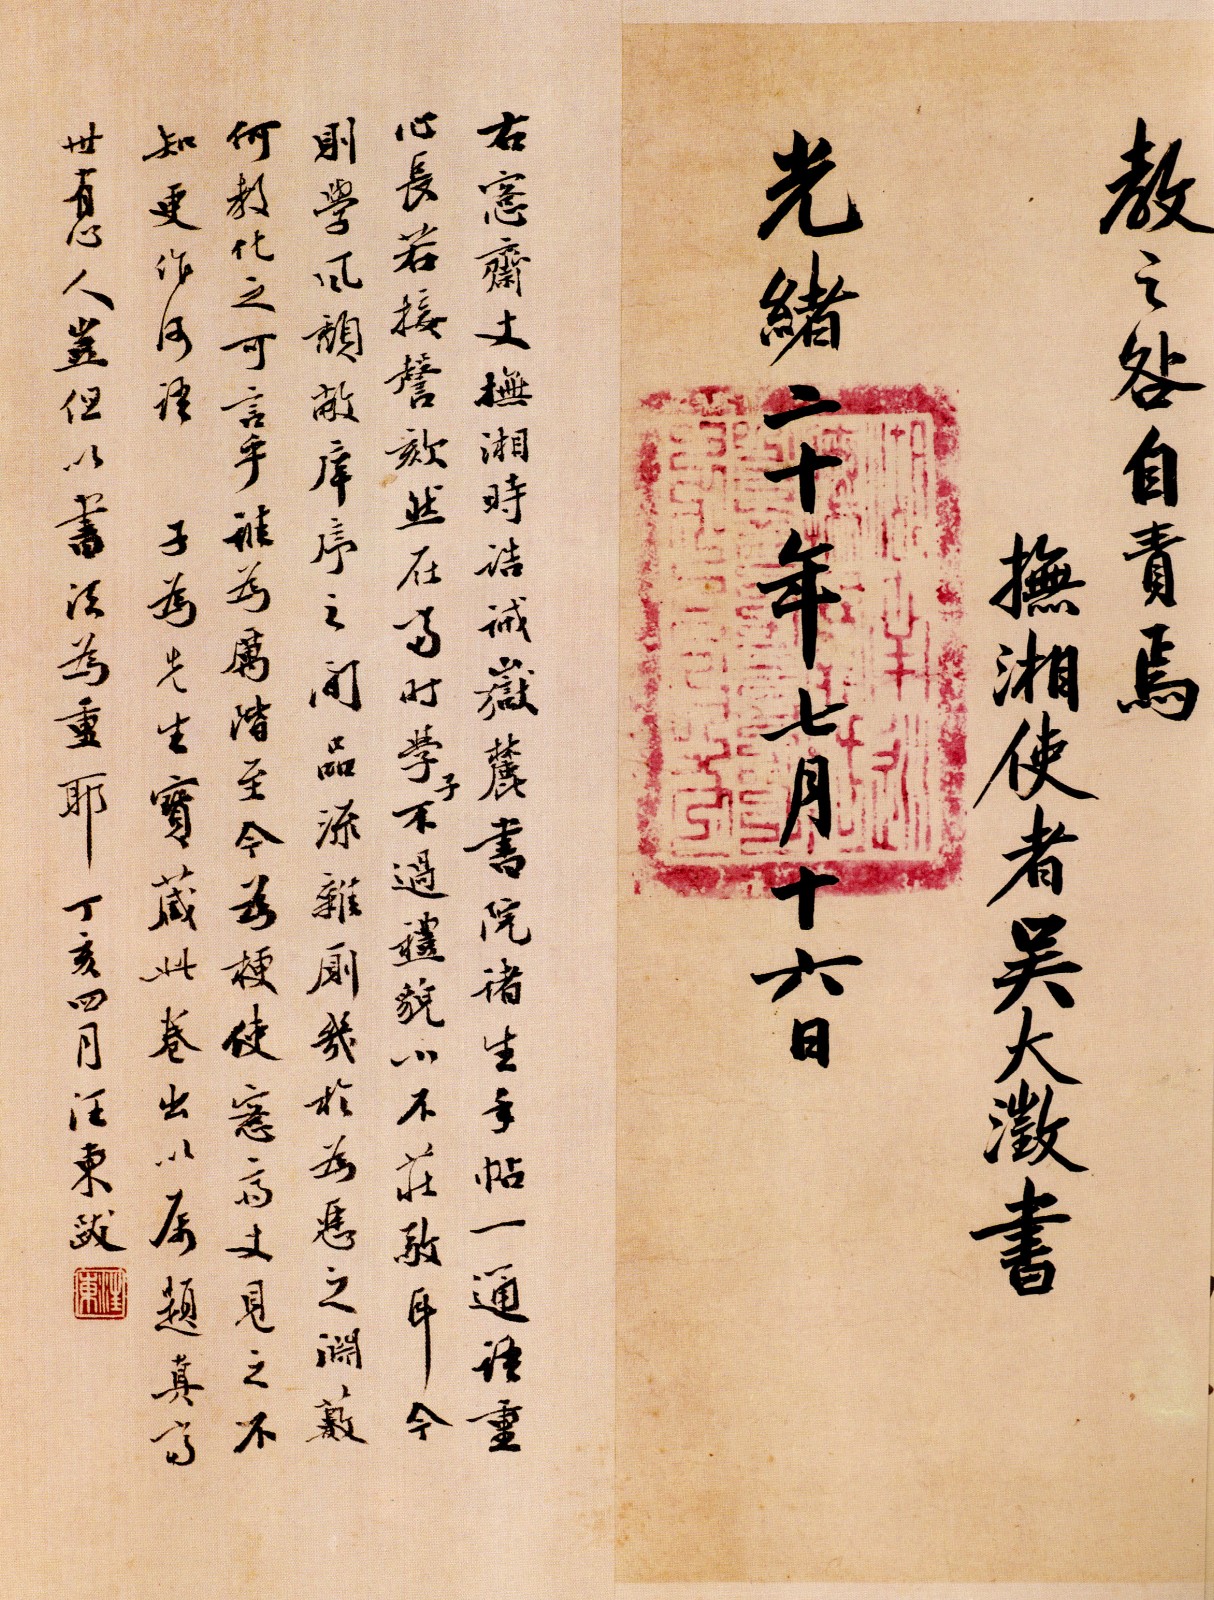 教之咎自責焉
撫湘使者吳大澂書
光緒二十年七月十六日
右窓齋丈撫湘時誥誡嶽麓書院諸生手帖一通語重
心長若接謦欬然在當時學子不過禮貌小不莊敬耳今
則學風頹敝庠序之間品流雜廁幾於為惡之淵藪
何教化之可言乎誰為厲階至今為梗使窓齋丈見之不
知更作何語 子為先生寶藏此卷出以属題真當
世有心人豈但以書法為重耶 丁亥四月汪東跋
汪東